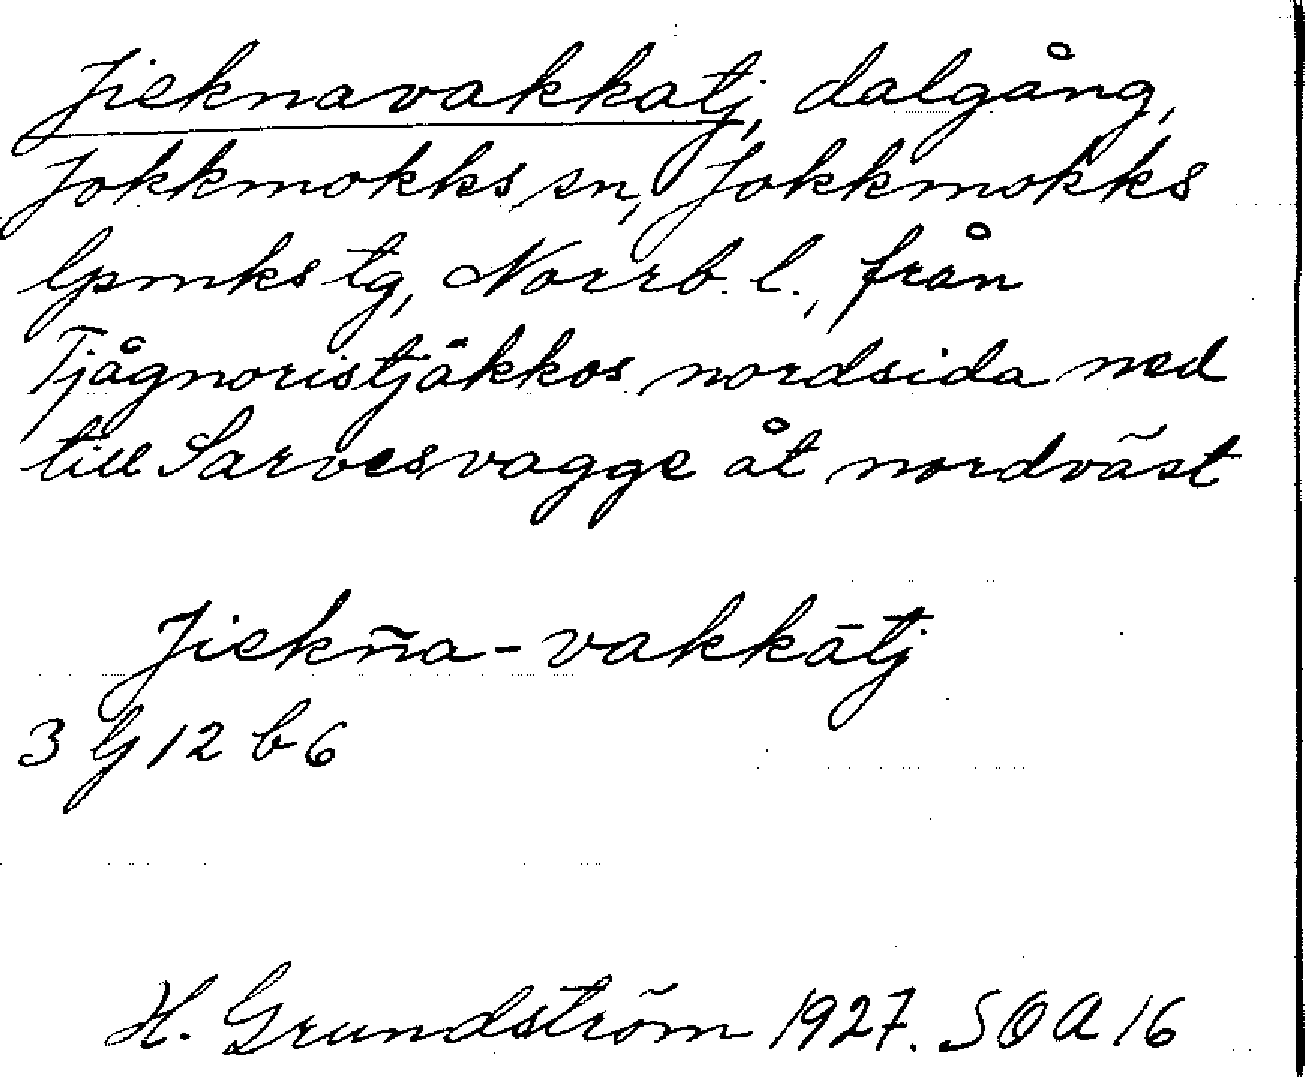 Jieknavakkatj, dalgång,
Jokkmokks sn, Jokkmokks
lpmks tg, Norrb. l., från
Tjågnoristjåkkos nordsida ned
till Sarvesvagge åt nordväst
Jiekn̄a-vakkātj
3 lj 12 b 6
H. Grundström 1927. SOA 16